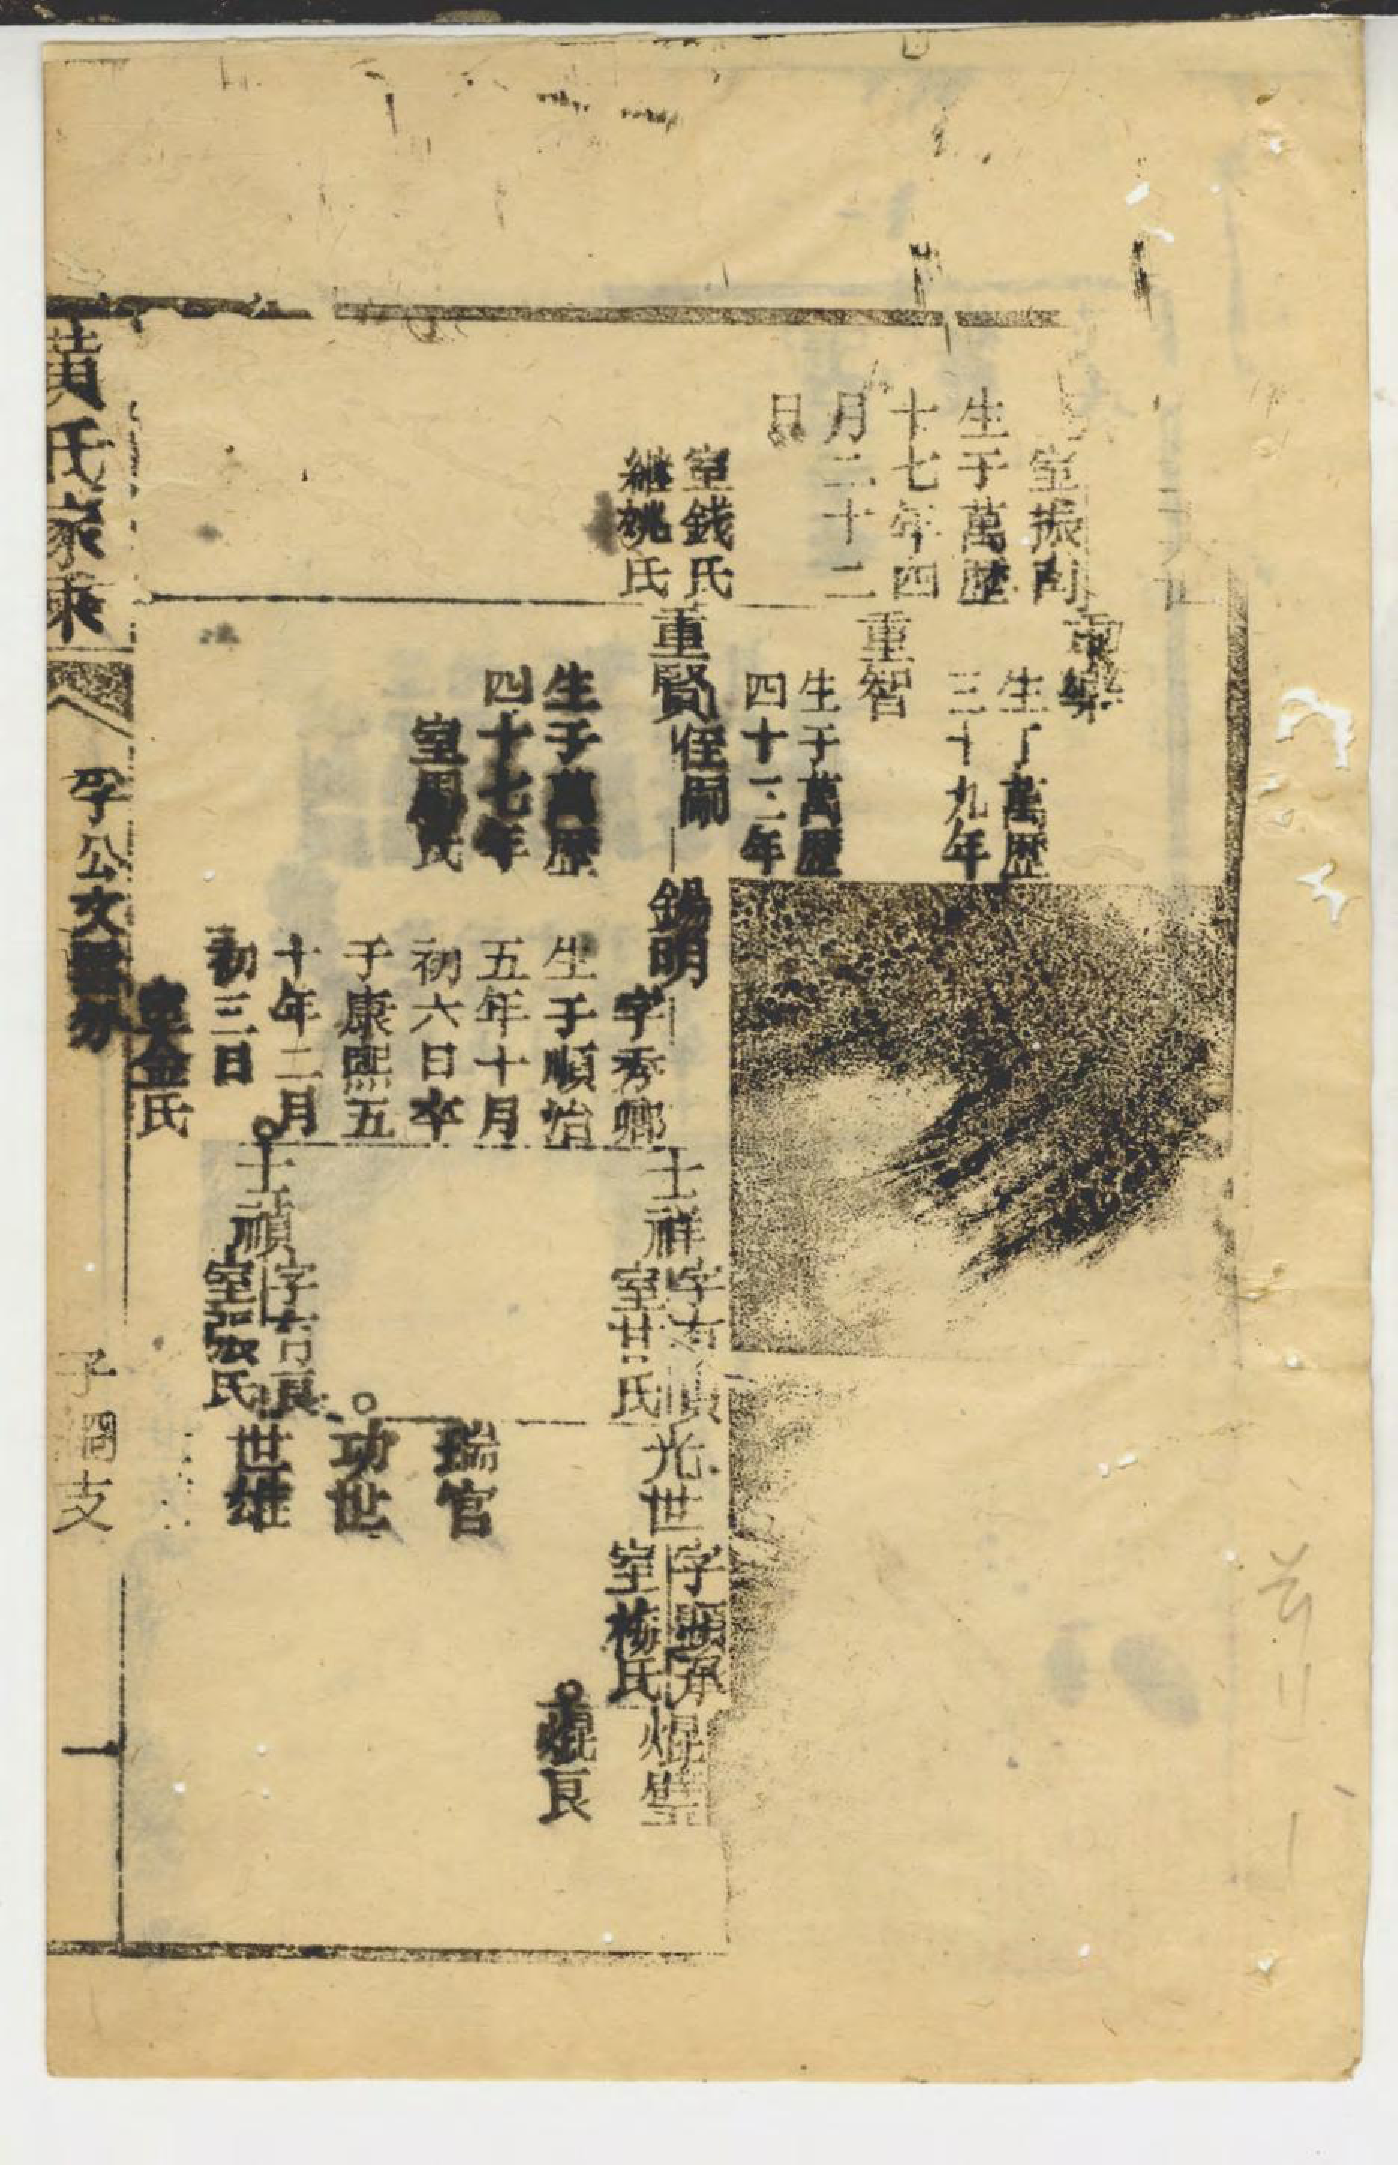 室振
生于萬歷
十七年四
月二十二
日
室錢氏
繼姚氏
生于萬歷
三十九年
重智
生于萬歷
四十三年
重賢侄嗣
生于萬歷
四十七年
室周氏
錫明
字秀卿
生于順治
五年十月
初六日卒
于康熙五
十年二月
初三日
室金氏
士祥
室甘氏
士禎
字吉良
室張氏
光世
字顯承
室楊氏
瑞官
功世
世雄
焜
焜良
黃氏家乘
孚公文
子 支
一